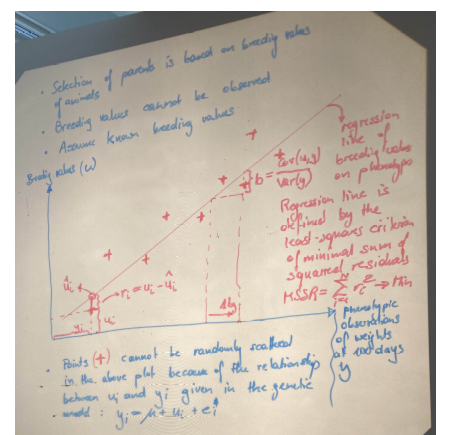 • Selection of parents is based on breeding values
of animals
• Breeding values cannot be observed
• Assume known breeding values
Breeding values (u)
regression
line of
breeding values
on phenotype
b = cov(u,y)
var(y)
Regression line is
defined by the
least-squares criterion
of minimal sum of
squared residuals
MSSR = Σ r_i² → Min
N
i=1
û_i
r_i = u_i - û_i
u_i
y_i
1kg
phenotypic
observations
of weights
at 100 days
y
• Points (+) cannot be randomly scattered
in the above plot because of the relationship
between u_i and y_i given in the genetic
model: y_i = μ + u_i + e_i